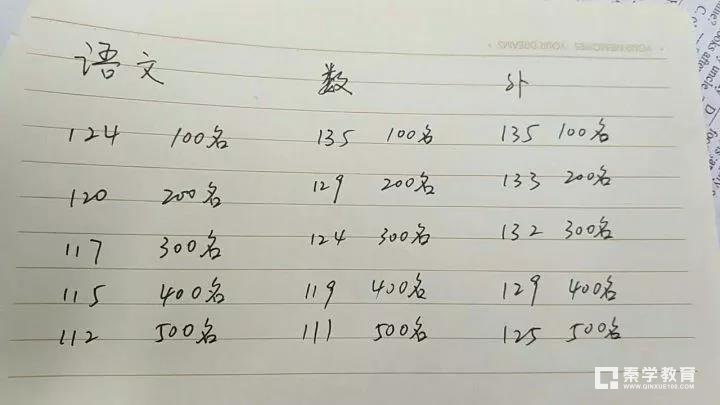 YOUR MEMORIES YOUR DREAMS
语文 数 外
124 100名 135 100名 135 100名
120 200名 129 200名 133 200名
117 300名 124 300名 132 300名
115 400名 119 400名 129 400名
112 500名 111 500名 125 500名
秦学教育
WWW.QINXUE100.COM